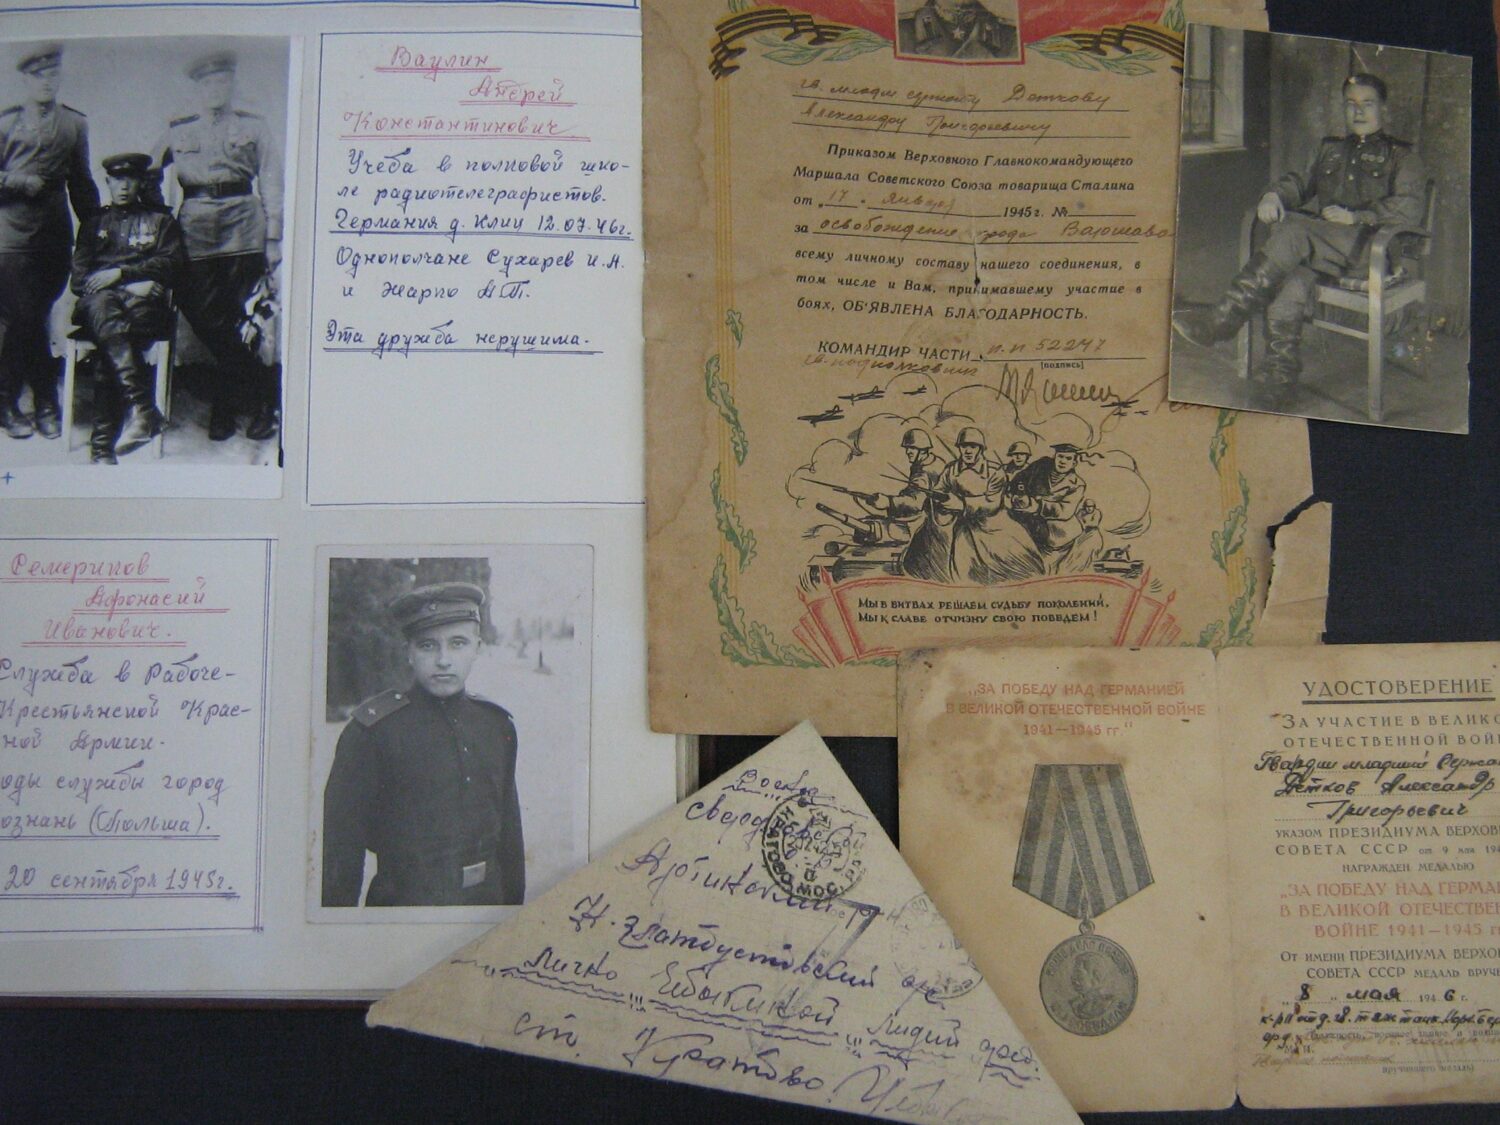 Ваулин
Андрей
Константинович
Учеба в полковой шко-
ле радиотелеграфистов.
Германия д. Клиц 12.07.46г.
Однополчане Сухарев И.А.
и Жарко А.Т.
Эта дружба нерушима.
Семерипов
Афонасий
Иванович.
Служба в Рабоче-
Крестьянской Крас-
ной Армии.
оды службы город
ознань (Польша).
20 сентября 1945г.
гв. младш. сержанту Деткову
Александру Григорьевичу
Приказом Верховного Главнокомандующего
Маршала Советского Союза товарища Сталина
от „17" января 1945 г. №
за освобождение города Варшава
всему личному составу нашего соединения, в
том числе и Вам, принимавшему участие в
боях, ОБ'ЯВЛЕНА БЛАГОДАРНОСТЬ.
КОМАНДИР ЧАСТИ п.п 52247
гв. подполковник [подпись]
МЫ В БИТВАХ РЕШАЕМ СУДЬБУ ПОКОЛЕНИЙ,
МЫ К СЛАВЕ ОТЧИЗНУ СВОЮ ПОВЕДЕМ!
Свердловской
Артинский
Н. Златоустовский
Лично Чебыкиной Лидий
ст. Кратово.
„ЗА ПОБЕДУ НАД ГЕРМАНИЕЙ
В ВЕЛИКОЙ ОТЕЧЕСТВЕННОЙ ВОЙНЕ
1941—1945 гг."
НАШЕ ДЕЛО ПРАВОЕ
МЫ ПОБЕДИЛИ
УДОСТОВЕРЕНИЕ
ЗА УЧАСТИЕ В ВЕЛИКО
ОТЕЧЕСТВЕННОЙ ВОЙН
Гвардии младший Сержан
Детков Александр
Григорьевич
УКАЗОМ ПРЕЗИДИУМА ВЕРХОВ
СОВЕТА СССР от 9 мая 194
НАГРАЖДЕН МЕДАЛЬЮ
„ЗА ПОБЕДУ НАД ГЕРМАН
В ВЕЛИКОЙ ОТЕЧЕСТВЕН
ВОЙНЕ 1941—1945 гг
ОТ ИМЕНИ ПРЕЗИДИУМА ВЕРХОВ
СОВЕТА СССР МЕДАЛЬ ВРУЧЕ
„8" мая 1946 г.